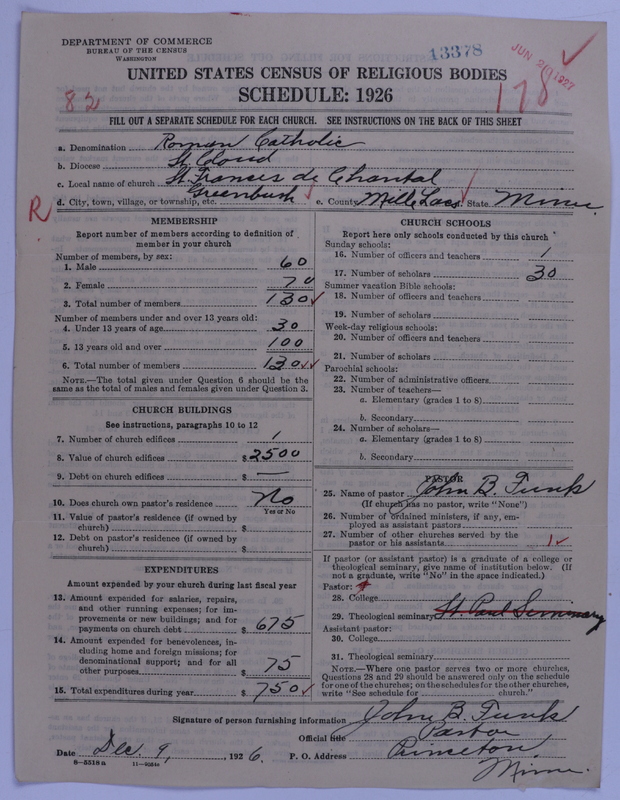 DEPARTMENT OF COMMERCE
BUREAU OF THE CENSUS
WASHINGTON
13378
JUN 2 1927
178
82
UNITED STATES CENSUS OF RELIGIOUS BODIES
SCHEDULE: 1926
FILL OUT A SEPARATE SCHEDULE FOR EACH CHURCH. SEE INSTRUCTIONS ON THE BACK OF THIS SHEET
a. Denomination Roman Catholic
b. Diocese St Cloud
c. Local name of church St. Francis de Chantal
d. City, town, village, or township, etc. Greenbush e. County Mille Lacs f. State Minn.
R
MEMBERSHIP
Report number of members according to definition of
member in your church
Number of members, by sex:
1. Male 60
2. Female 70
3. Total number of members 130
Number of members under and over 13 years old:
4. Under 13 years of age 30
5. 13 years old and over 100
6. Total number of members 130
NOTE.—The total given under Question 6 should be the
same as the total of males and females given under Question 3.
CHURCH BUILDINGS
See instructions, paragraphs 10 to 12
7. Number of church edifices 1
8. Value of church edifices $2500
9. Debt on church edifices $ —
10. Does church own pastor's residence No
Yes or No
11. Value of pastor's residence (if owned by
church) $
12. Debt on pastor's residence (if owned by
church) $
EXPENDITURES
Amount expended by your church during last fiscal year
13. Amount expended for salaries, repairs,
and other running expenses; for im-
provements or new buildings; and for
payments on church debt $ 675
14. Amount expended for benevolences, in-
cluding home and foreign missions; for
denominational support; and for all
other purposes $ 75
15. Total expenditures during year $ 750
CHURCH SCHOOLS
Report here only schools conducted by this church
Sunday schools:
16. Number of officers and teachers 1
17. Number of scholars 30
Summer vacation Bible schools:
18. Number of officers and teachers
19. Number of scholars
Week-day religious schools:
20. Number of officers and teachers
21. Number of scholars
Parochial schools:
22. Number of administrative officers
23. Number of teachers—
a. Elementary (grades 1 to 8)
b. Secondary
24. Number of scholars—
a. Elementary (grades 1 to 8)
b. Secondary
PASTOR
25. Name of pastor John B. Funk
(If church has no pastor, write "None")
26. Number of ordained ministers, if any, em-
ployed as assistant pastors
27. Number of other churches served by the
pastor or his assistants 1
If pastor (or assistant pastor) is a graduate of a college or
theological seminary, give name of institution below. (If
not a graduate, write "No" in the space indicated.)
Pastor:
28. College
29. Theological seminary St. Paul Seminary
Assistant pastor:
30. College
31. Theological seminary
NOTE.—Where one pastor serves two or more churches,
Questions 28 and 29 should be answered only on the schedule
for one of the churches; on the schedules for the other churches,
write "See schedule for church."
Signature of person furnishing information John B. Funk
Official title Pastor
Date Dec. 9, 1926. P. O. Address Princeton,
Minn.
8—5318 a